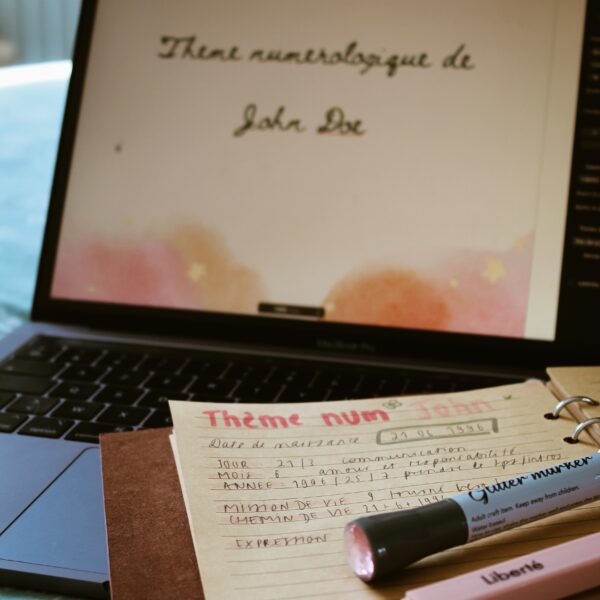 Thème numérologique de
John Doe
MacBook Pro
Thème num John
Date de naissance 21 06 1996
JOUR 21/3 communication
MOIS 6 amour et responsabilité
ANNEE 1996/25/7 prendre de tps/intros
MISSION DE VIE 9
CHEMIN DE VIE 21+6+
EXPRESSION
Glitter marker
Adult craft item. Keep away from children.
Liberté